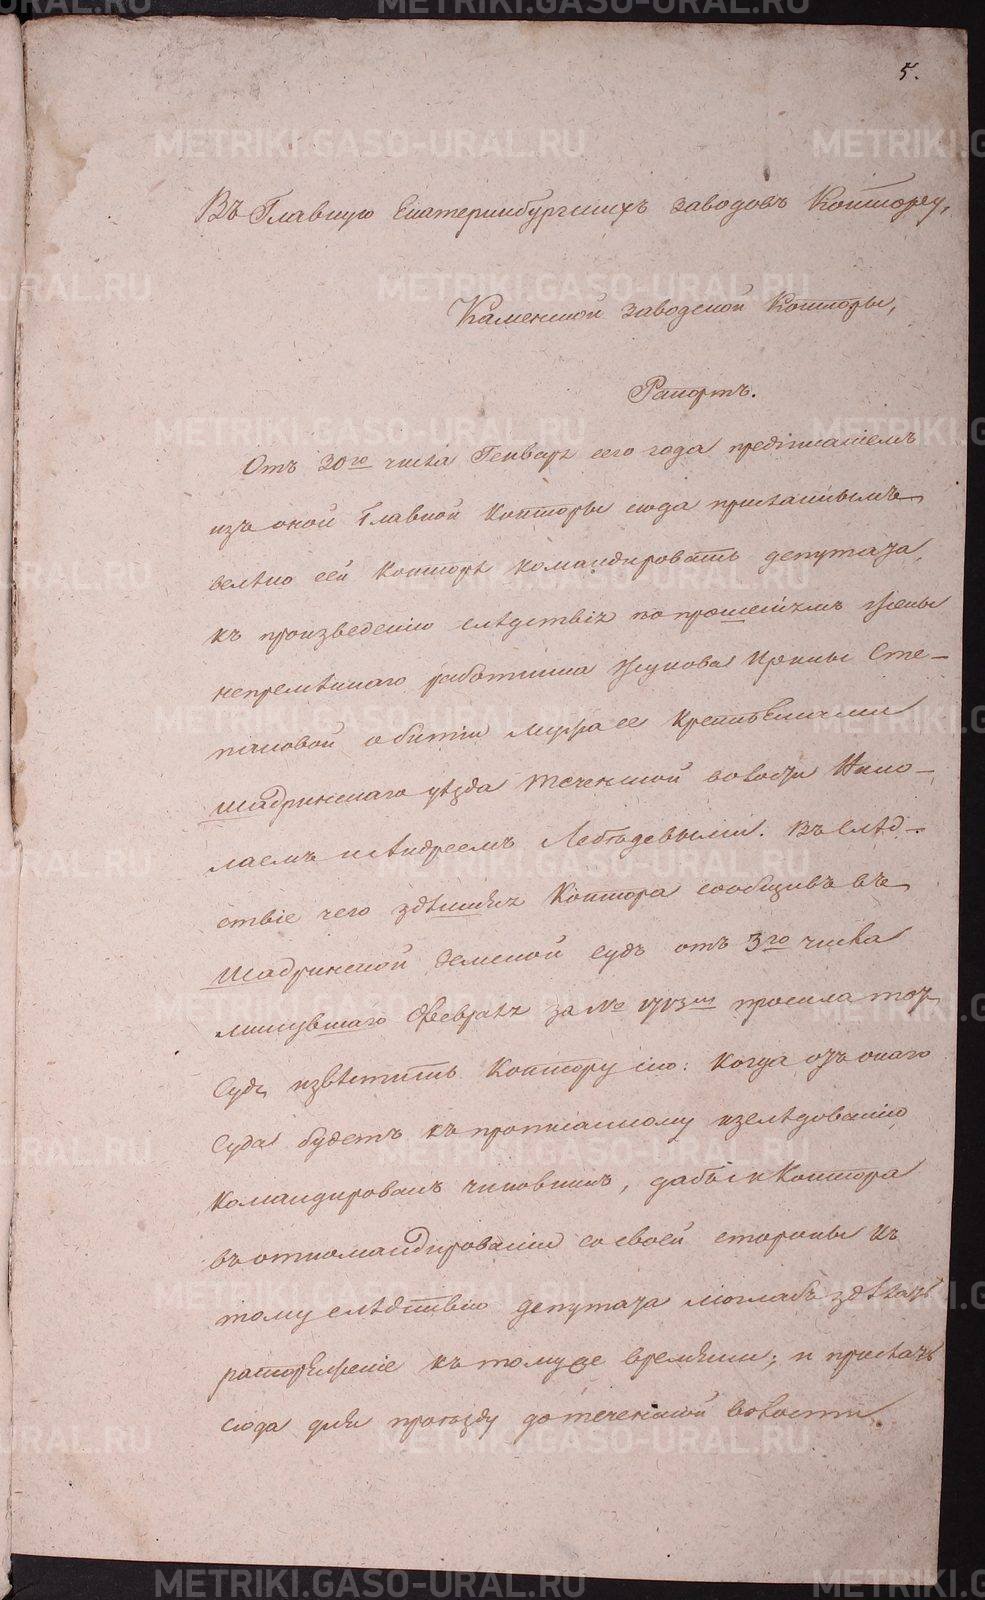 5.
Въ Главную Екатеринбургскихъ заводовъ Контору,
Каменской заводской Конторы,
Рапортъ.
Отъ 30го числа Генваря сего года предписаніемъ
изъ оной Главной Конторы сюда присланнымъ
велѣно сей Конторѣ командировать депутата,
къ произведенію слѣдствія по прошеніямъ жены
непремѣннаго работника Жукова Ирины Сте-
пановой о битіи мужа ее крестьянами
Шадринскаго уѣзда Теченской волости Нико-
лаемъ и Андреемъ Лебедевыми. Въ слѣд-
ствіе чего здѣшняя Контора сообщивъ въ
Шадринской Земской судъ отъ 3го числа
минувшаго Февраля за № просила тотъ
Судъ извѣстить Контору сію: когда изъ онаго
Суда будетъ къ прописанному изслѣдованію
командированъ чиновникъ, дабы и Контора
въ откомандированіи со своей стороны къ
тому слѣдствію депутата моглабъ здѣлать
распоряженіе къ томуже времяни; и прислать
сюда для проѣзду до теченской волости
METRIKI.GASO-URAL.RU